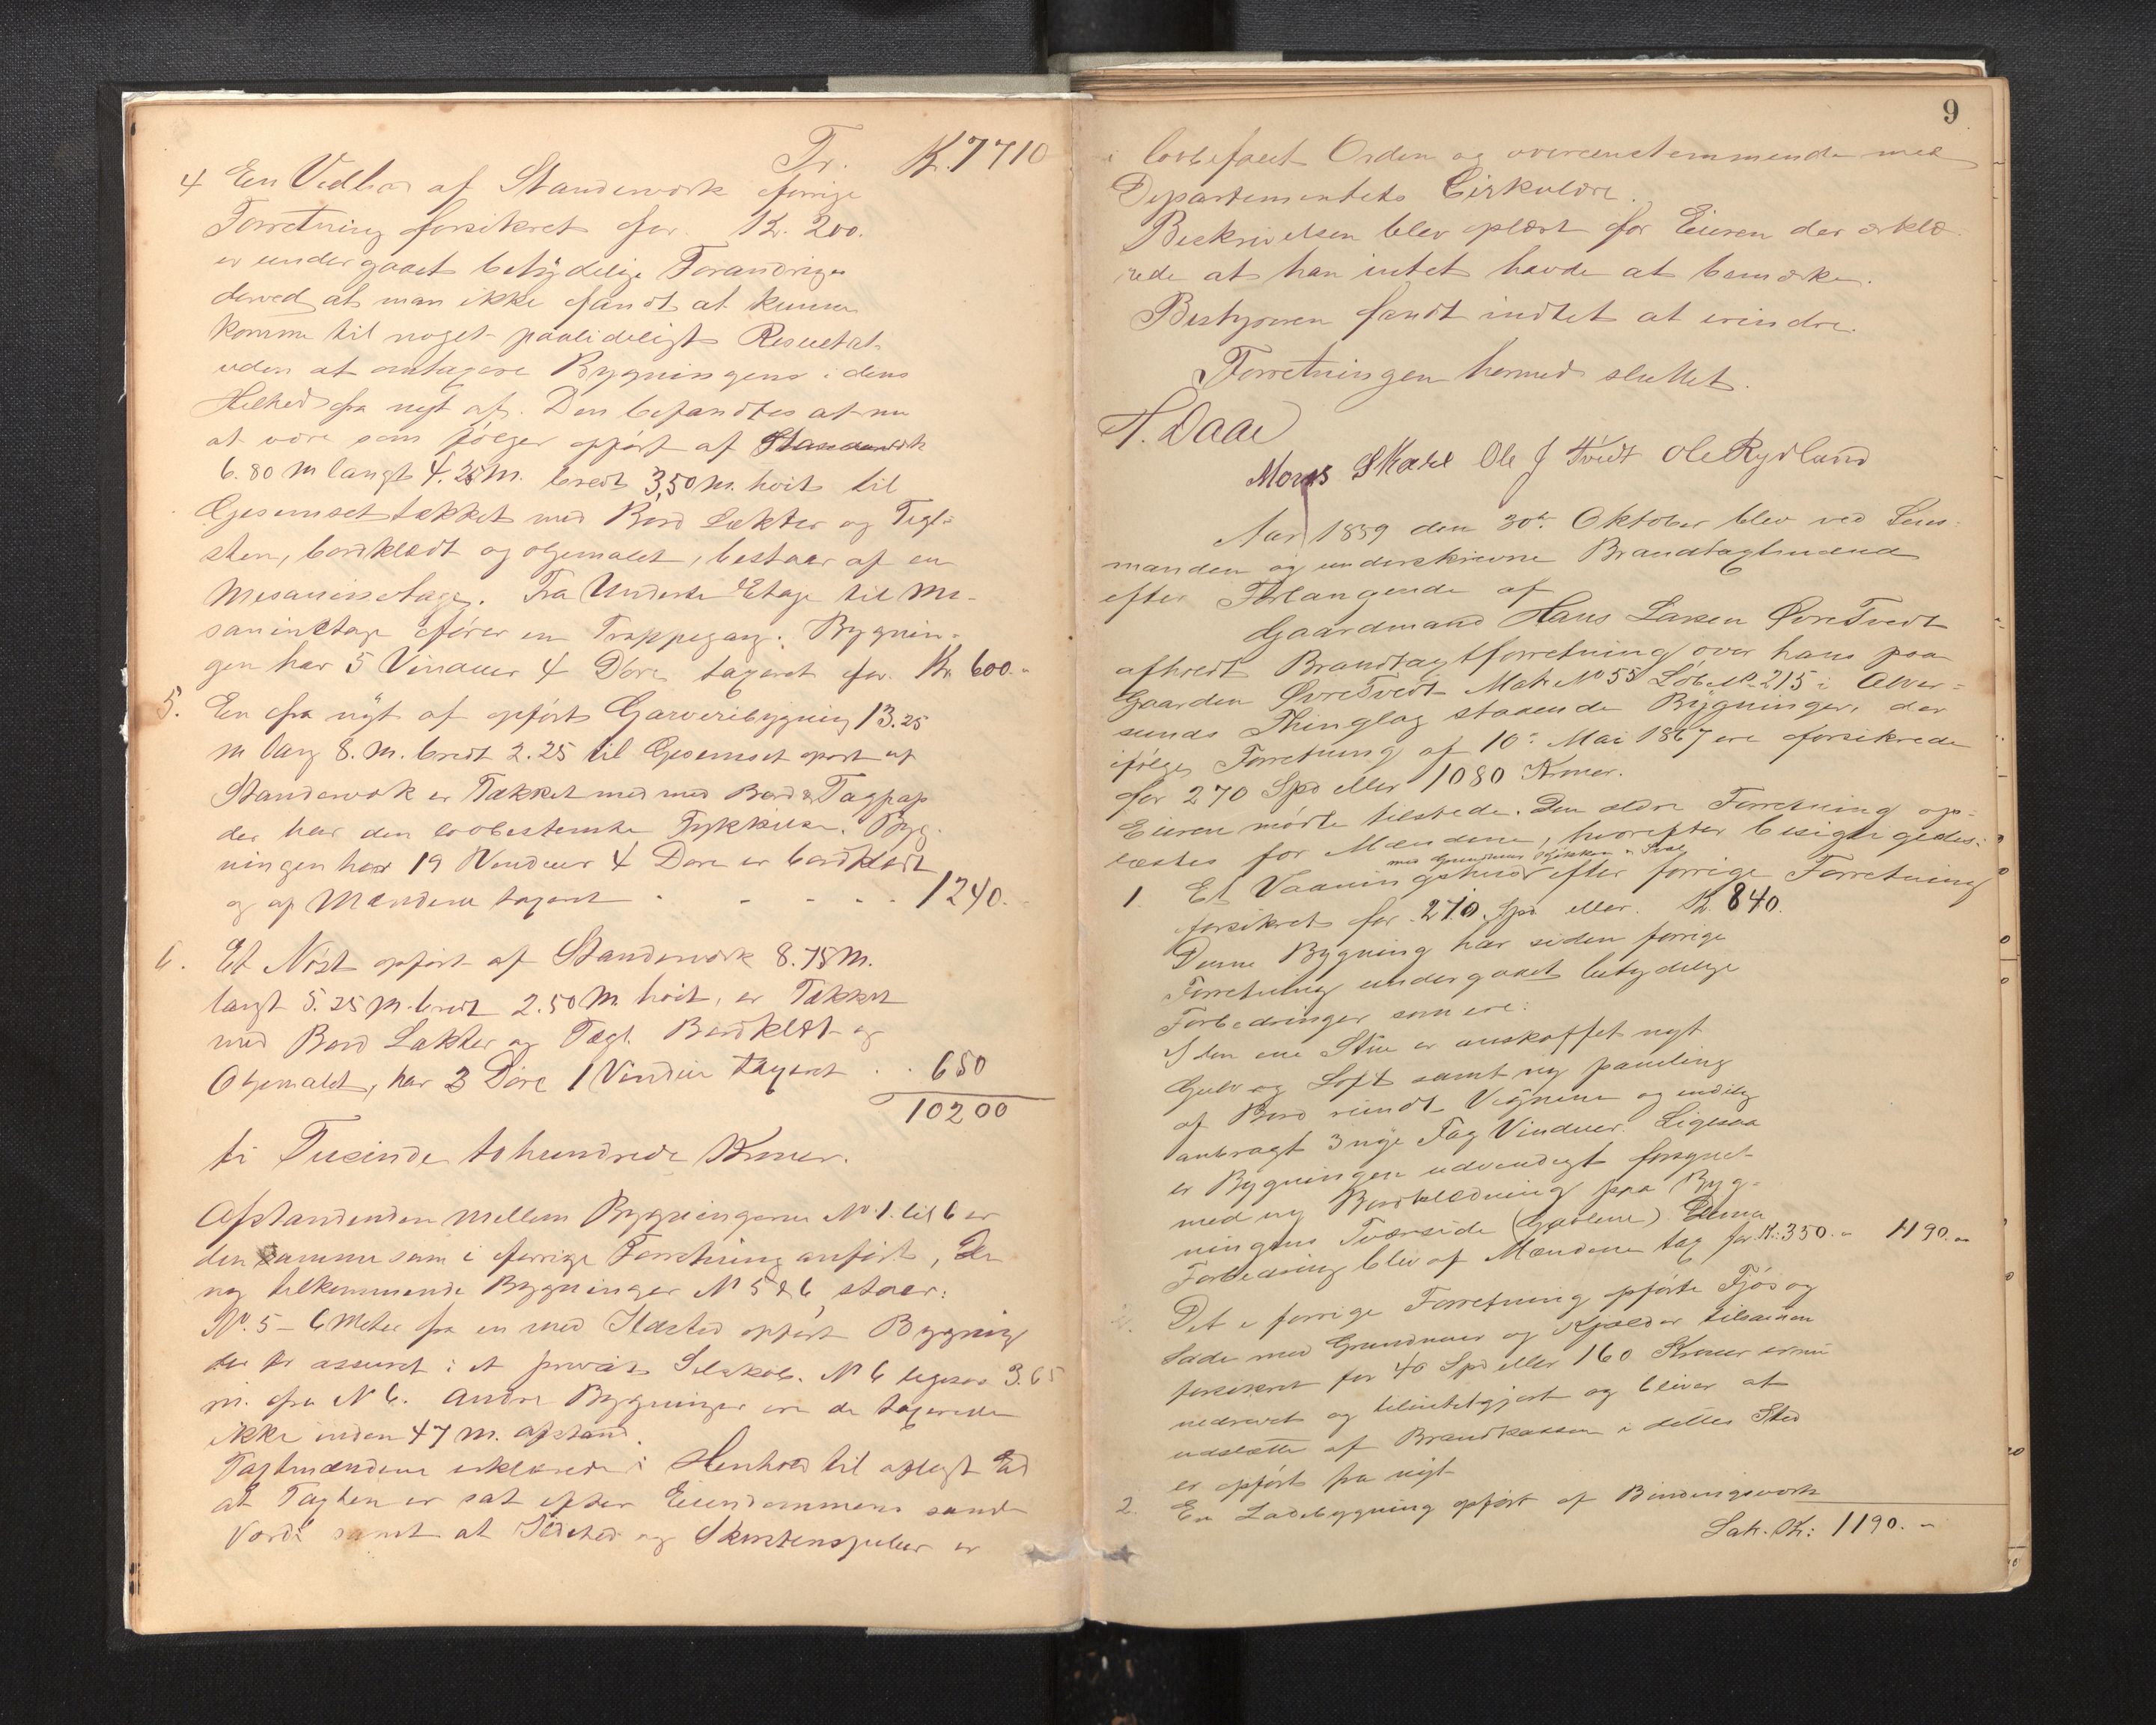 Tr. Kr. 7710
4 Een Vedbod af Standerværk forrige
Forretning forsikret for. Kr. 200.
er undergaaet betydelige Forandringer
derved at man ikke fandt at kunne
komme til noget paalideligt Resultat
uden at antagere Bygningens i dens
Helhed fra nyt af. Den befandtes at nu
at være som følger opført af Standerværk
6.80 m langt 4.25 M. bredt 3,50 M. høit til
Gesemset tækket med Bord Lækter og Tegl=
sten, bordklædt og oljemalet, bestaar af en
Mesaninetage. Fra Underste Etage til Me-
saninetage fører en Trappegang. Bygnin=
gen har 5 Vinduer 4 Døre, taxeret for. Kr. 600.-
5. En fra nyt af opført Garveribygning 13.25
m lang 8. m. bredt 2.25 til Gesemset opørt af
Standerværk er Tækket med med Bord & Tagpap
der har den lovbestemte Tykkelse. Byg-
ningen har 19 Vinduer 4 Døre er bordklædt
og af Mændene taxeret - - - - 1240.
6. Et Nøst opført af Standerværk 8.75 M.
langt 5.25 M. bredt 2.50 M høit, er Tækket
med Bord Lækter og Tegl. Bordklædt og
Oljemalet, har 3 Døre 1 Vindue taxeret . . 650
10200
ti Tusinde tohundrede Kroner.
Afstandenden mellem Bygningerne No. 1. til 6 er
den samme som i forrige Forretning anført, De
ny tilkommende Bygninger No 5 & 6, staar:
No. 5 - 6 Meter fra en med Ildsted opført Bygning
der er assuret i et privat Selskab. No 6 ligesaa 3.65
m. fra N 6. Andre Bygninger ere de taxerede
ikke inden 47 m. afstand.
Taxtmændene erklærede i Henhold til aflagt Ed
at Taxten er sat efter Eiendommens sande
Værdi samt at Ildsted og Skorstenspiber er
9
i lovbefalet Orden og overeenstemmende med
Departementets Cirkulære.
Beskrivelsen blev oplæst for Eieren der erklæ-
rede at han intet havde at bemærke.
Bestyreren fandt indtet at erindre.
Forretningen hermed sluttet.
A. Daae
Mons Skare Ole J Tvedt Ole Rydland
Aar 1889 den 30te Oktober blev ved Lens-
manden og underskrevne Brandtaxtmænd
efter Forlangende af
Gaardmand Hans Larsen Øvre Tvedt
afholdt Brandtaxtforretning over hans paa
Gaarden Øvre Tvedt Matr. No 55 Løbe No 215 i Alver=
sunds Thinglag staaende Bygninger, der
ifølge Forretning af 10de Mai 1867 ere forsikrede
for 270 Spd eller 1080 Kroner.
Eieren mødte tilstede. Den ældre Forretning op-
læstes for Mændene, hvorefter besigtigedes:
med Grundmur Kjøkken og Sval
1. Et Vaaningshus efter forrige Forretning
forsikret for 210 Spd eller. Kr. 840.
Denne Bygning har siden forrige
Forretning undergaaet betydelige
Forbedringer som ere:
I den ene Stue er anskaffet nyt
Gulv og Loft samt ny paneling
af Bord rundt Væggene og endelig
anbragt 3 nye Fag Vinduer. Ligesaa
er Bygningen udvendigt forsynet
med ny Bordklædning paa Byg-
ningens Tværside (Gavlene). Denne
Forbedring blev af Mændene tax for Kr: 350. - 1190. -
2. Det i forrige Forretning opførte Fjøs og
Lade med Grundmur og Kjælder tilsammen
forsikret for 40 Spd eller 160 Kroner er nu
nedrevet og tilintetgjort og bliver at
udslætte af Brandkassen i dettes Sted
er opført fra nyt
2. En Ladebygning opført af Bindingsværk
Lat. Kr: 1190. -